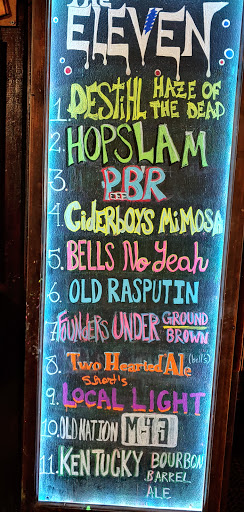 The
ELEVEN
1. DESTIHL HAZE OF THE DEAD
2. HOPSLAM
3. PBR
4. Ciderboys MiMOSA
5. BELLS No Yeah
6. OLD RASPUTIN
7. FOUNDERS UNDER GROUND BROWN
8. Two HeartedAle (bell's)
9. Short's LOCAL LIGHT
10. OLD NATION M-43
11. KENTUCKY BOURBON BARREL ALE